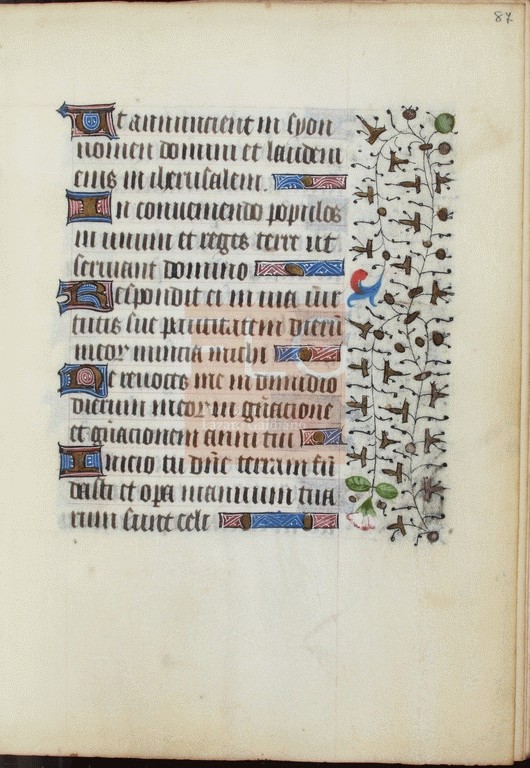 87
Ut annuncient in syon
nomen domini et laudem
eius in iherusalem.
In conveniendo populos
in unum et reges terre ut
serviant domino
Respondit ei in via vir
tutis sue paucitatem dieru
meor nuncia michi
Ne revoces me in dimidio
dierum meor in gnacione
et gnacionem anni tui
Inicio tu dne terram fu
dasti et opa manuum tua
rum sunt celi
Lázaro Galdiano